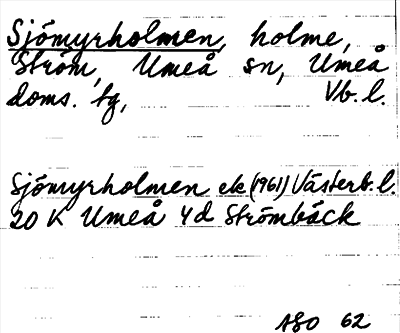 Sjömyrholmen, holme,
Ström, Umeå sn, Umeå
doms. tg, Vb. l.
Sjömyrholmen ek (1961) Västerb. l.
20 K Umeå 4d Strömbäck
ASO 62